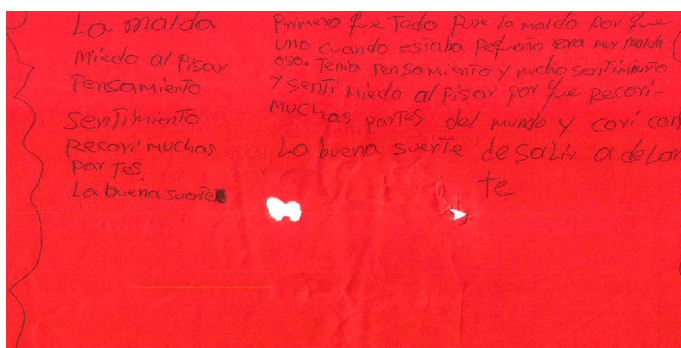 La malda
Miedo al pisar
Pensamiento
Sentimiento
Recorí muchas
partes.
La buena suerte
Primero que todo puse la malda por que
uno cuando estaba pequeño era muy malda
oso. Tenia pensamiento y mucho sentimiento
y sentí miedo al pisar por que recorí
muchas partes del mundo y corí con
La buena suerte de salir a delan
te